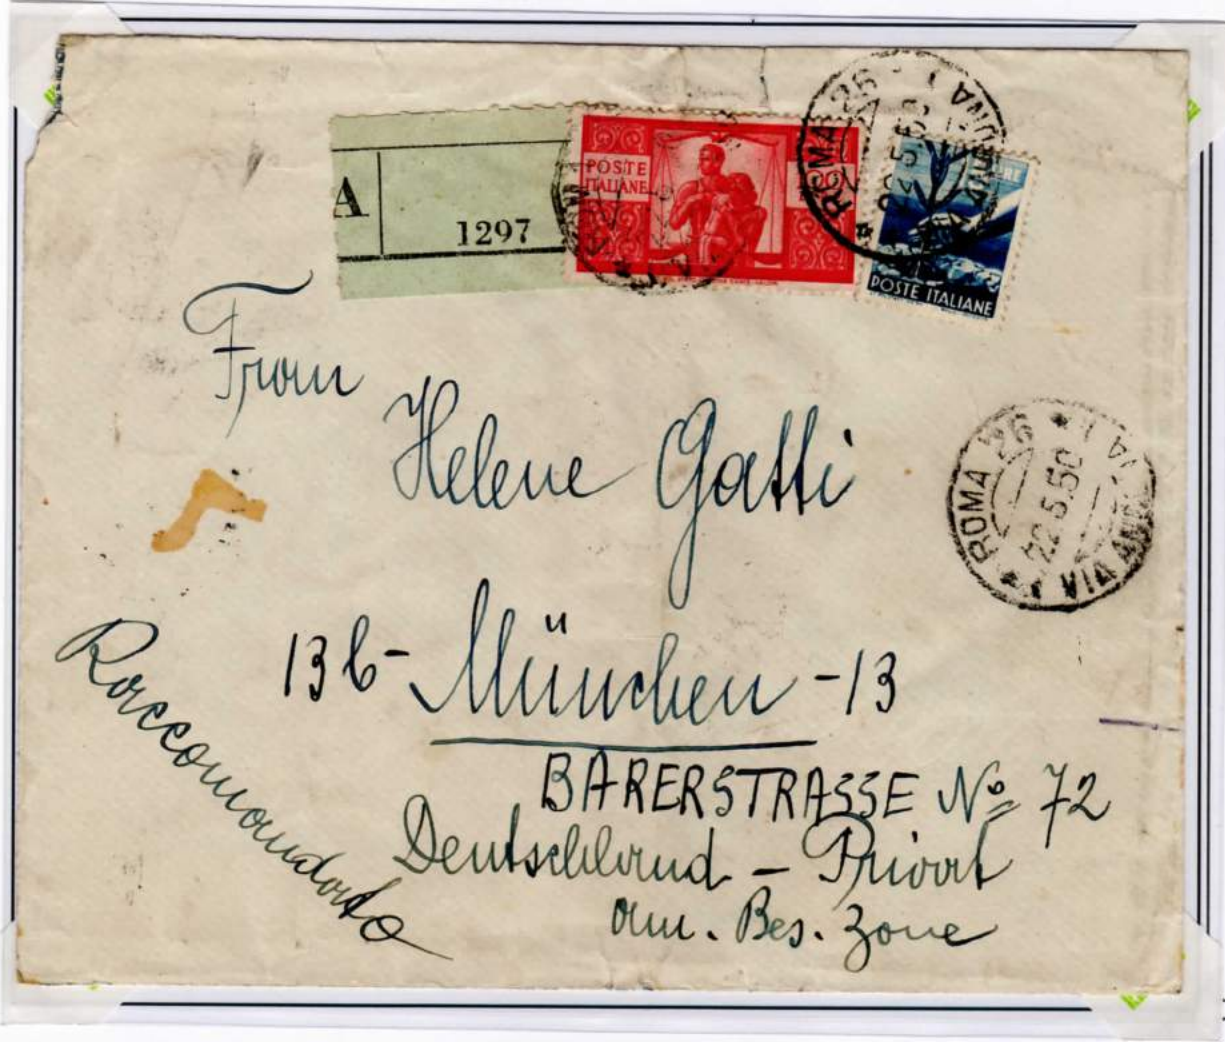 A
1297
POSTE
ITALIANE
ROMA 26
22.5.50
POSTE ITALIANE
Frau
Helene Gatti
ROMA 26
22.5.50
VIA
13b - München - 13
BARERSTRASSE No 72
Deutschland - Privat
am. Bes. Zone
Raccomandata